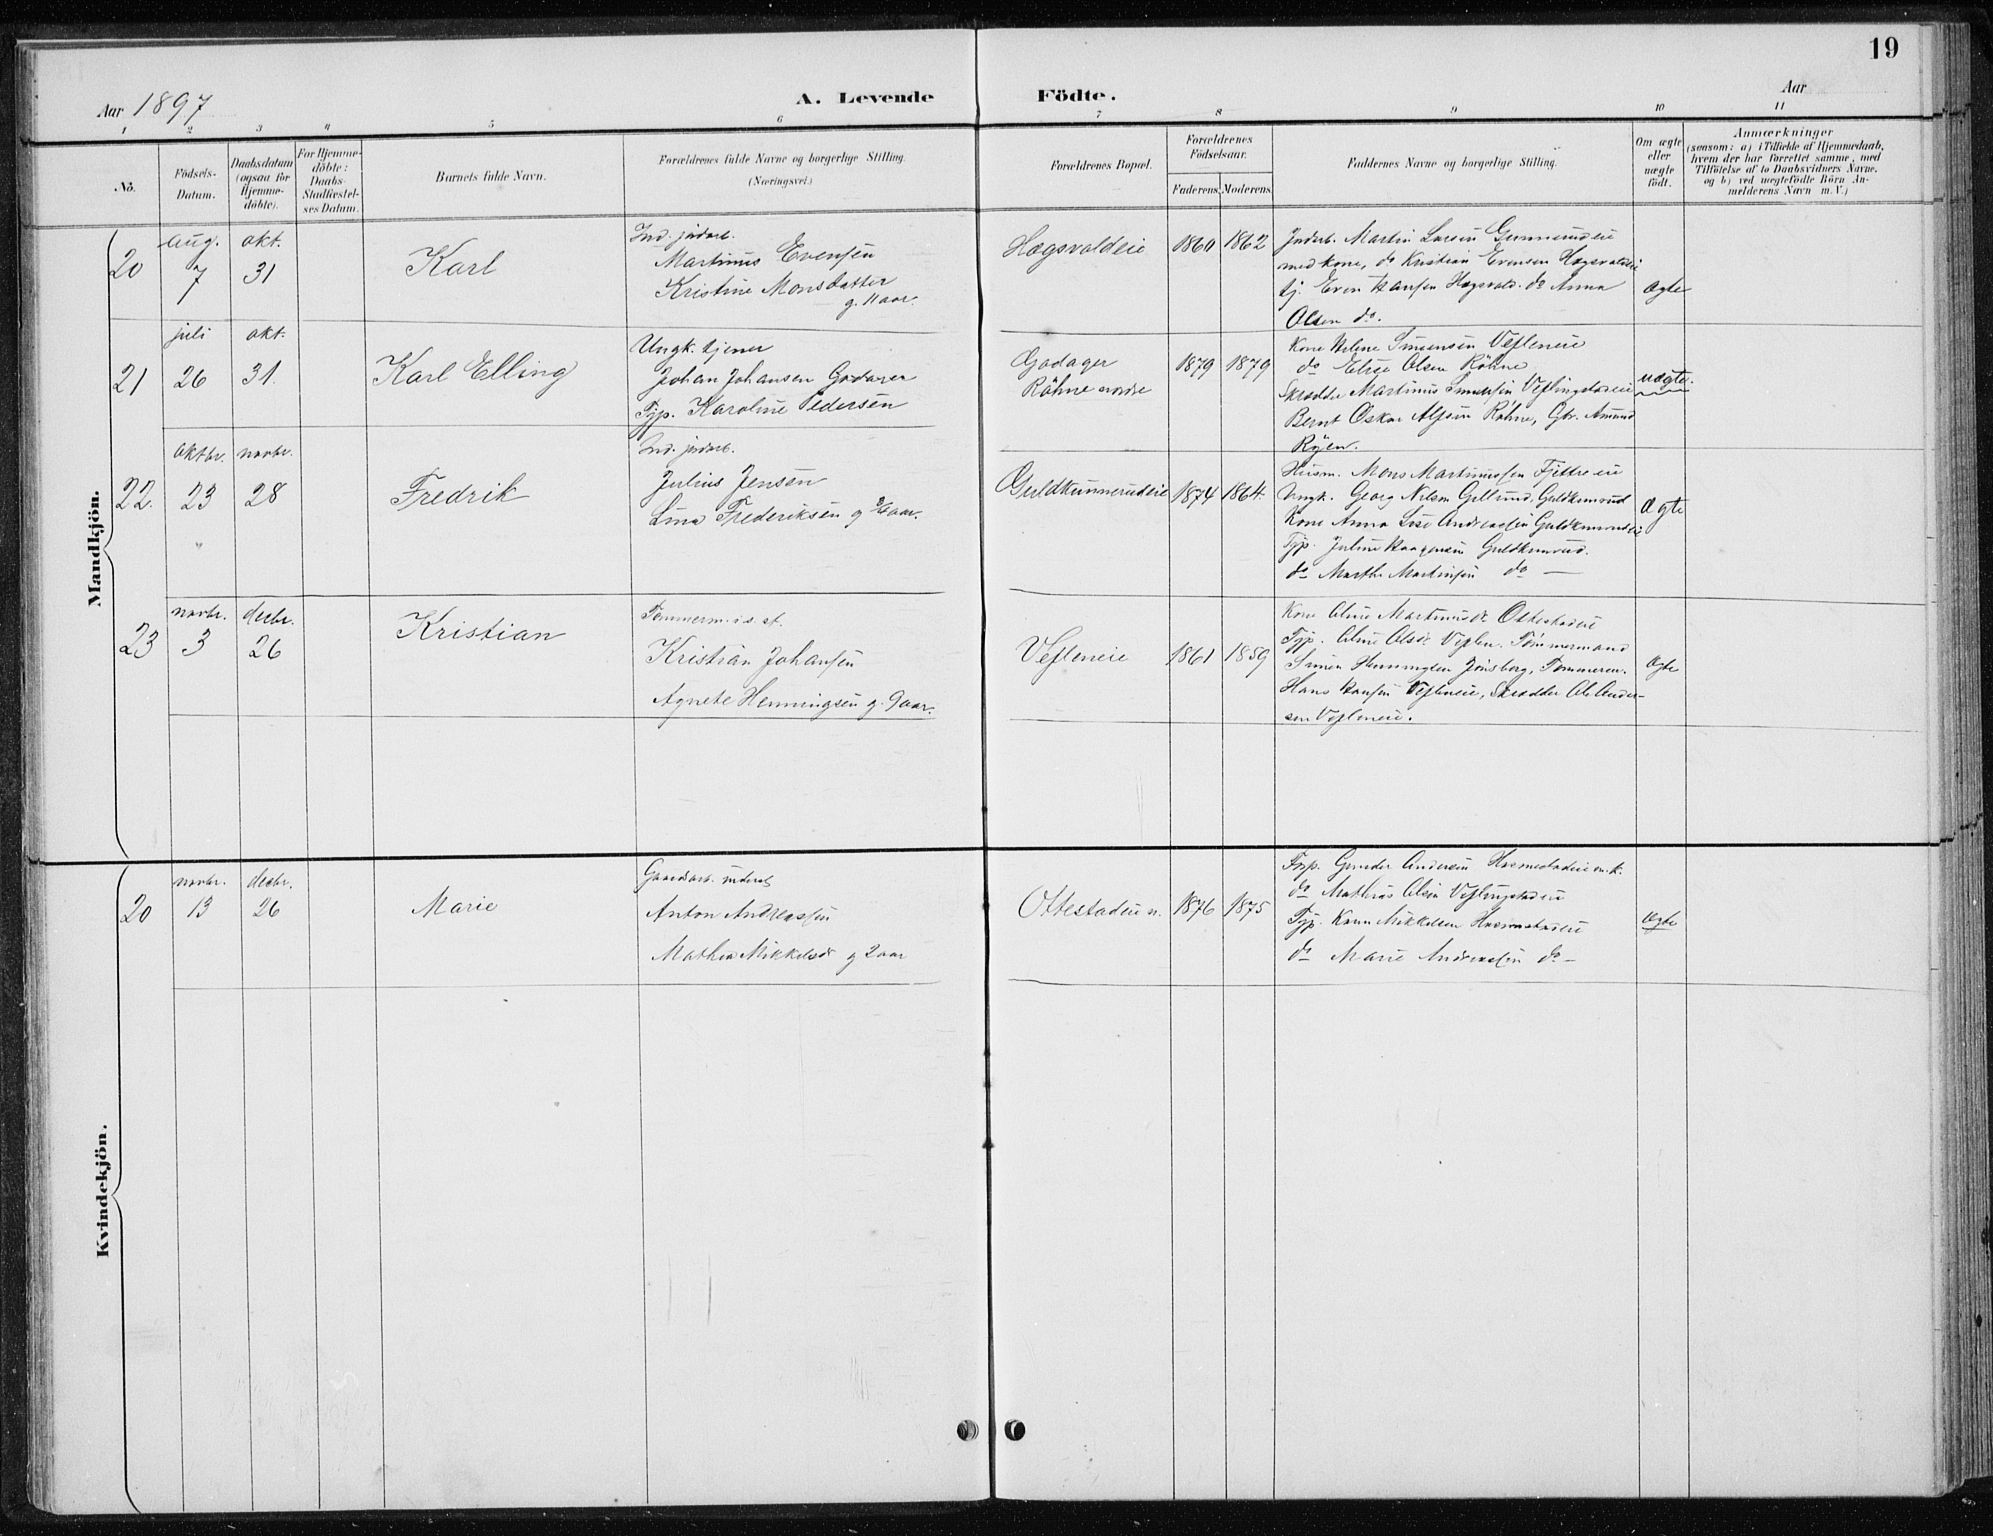 19
Aar 1897
A. Levende Födte.
Aar
1 2 3 4 5 6 7 8 9 10 11
No.
Födsels-Datum.
Daabsdatum (ogsaa for Hjemme-döbte).
For Hjemme-döbte: Daabs-Stadfæstel-ses Datum.
Barnets fulde Navn.
Forældrenes fulde Navne og borgerlige Stilling.
(Næringsvei.)
Forældrenes Bopæl.
Forældrenes Födselsaar.
Faderens. Moderens.
Faddernes Navne og borgerlige Stilling.
Om ægte eller uægte födt.
Anmærkninger
(saasom: a) i Tilfælde af Hjemmedaab,
hvem der har forrettet samme, med
Tilföielse af to Daabsvidners Navne.
og b) ved uægtefödte Börn An-
melderens Navn m. V.)
Mandkjön.
20
Aug. 7
okt. 31
Karl
Ind. jordarb.
Martinus Evensen
Kristine Monsdatter
g. 11 aar.
Hægsvaldeie
1860 1862
Jordarb. Martin Larsen
med kone, do Kristian Evensen Hægsvaldeie
tj. Even Hansen Hægsvald. do Anna
Olsen do.
Ægte
21
juli 26
okt. 31.
Karl Elling
Ungk. tjener
Johan Johansen Godager
Typ. Karoline Pedersen
Godager
Röhne nordre
1879 1879
Kone Helene Simensen Vefleneie
do Elise Olsen Röhne
Skrædder Martinus Simensen Veflingstadeie
Bernt Oskar Alfsen Röhne, Gbr. Amund
Röjen.
uægte.
22.
oktbr. 23
novbr. 28
Fredrik
Ind. jordarb.
Julius Jensen
Lina Frederiksen g aar.
Guldkunnerudeie
1874 1864.
Husm. Mons Martinussen Fjetreeie
Ungk. Georg Nilsen
Kone Anna Lise Andreassen
Typ. Juline Haagensen
do Marthe Martinsen do —
Ægte
23
novbr. 3
decbr. 26
Kristian
Tömmerm. i s. st.
Kristian Johansen
Agnete Henningsen g. 9 aar.
Vefleneie
1861 1859
Kone Oline Martinusdr Ottestadeie
Typ. Oline Olsdr Veflen. Tömmermand
Simen Henningsen Jönsberg, Tömmerm.
Hans Hansen Vefleneie, Skrædder Ole Ander-
sen Vefleneie.
Ægte
Kvindekjön.
20
novbr. 13
decbr. 26
Marie
Gaardsarb.
Anton Andreassen
Mathea Mikkelsdr g 2 aar
Ottestadeie n.
1876 1875
Andersen
do Mathias Olsen Veflingstadeie
Typ. Karen Mikkelsen
do Marie Andreassen do —
Ægte